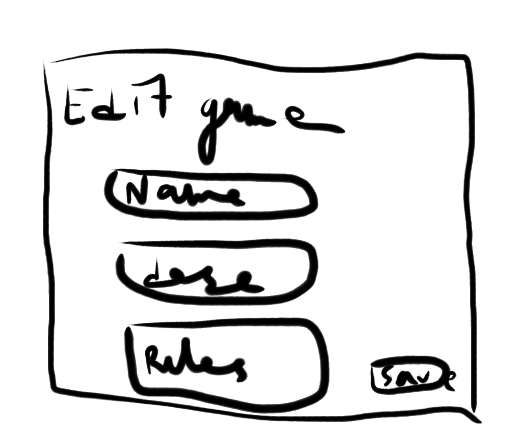 Edit game
Name
desc
Rules
Save